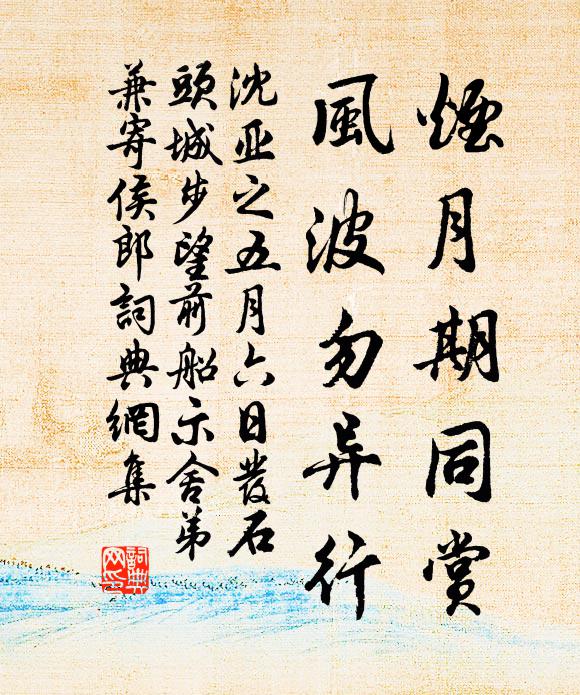 煙月期同賞
風波勿异行
沈亚之五月六日發石
頭城步望前船示舍弟
兼寄侯郎詞典網集
詞典
网